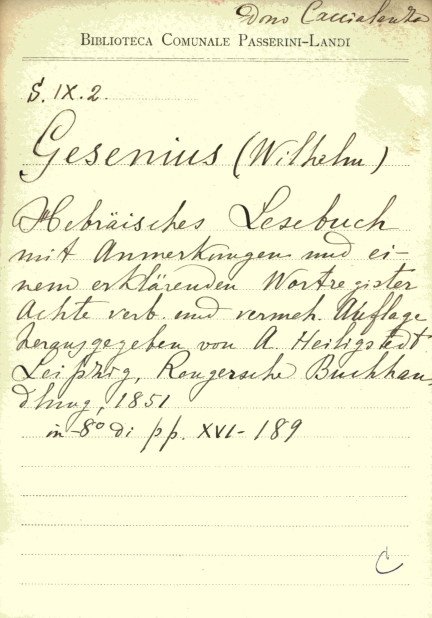 Dono Caccialanza
BIBLIOTECA COMUNALE PASSERINI-LANDI
S. IX. 2.
Gesenius (Wilhelm)
Hebräisches Lesebuch
mit Anmerkungen und ei-
nem erklärenden Wortregister
Achte verb. und vermeh. Auflage
herausgegeben von A. Heiligstedt
Leipzig, Rengersche Buchhan
dlung, 1851
in-8° di pp. XVI-189
C